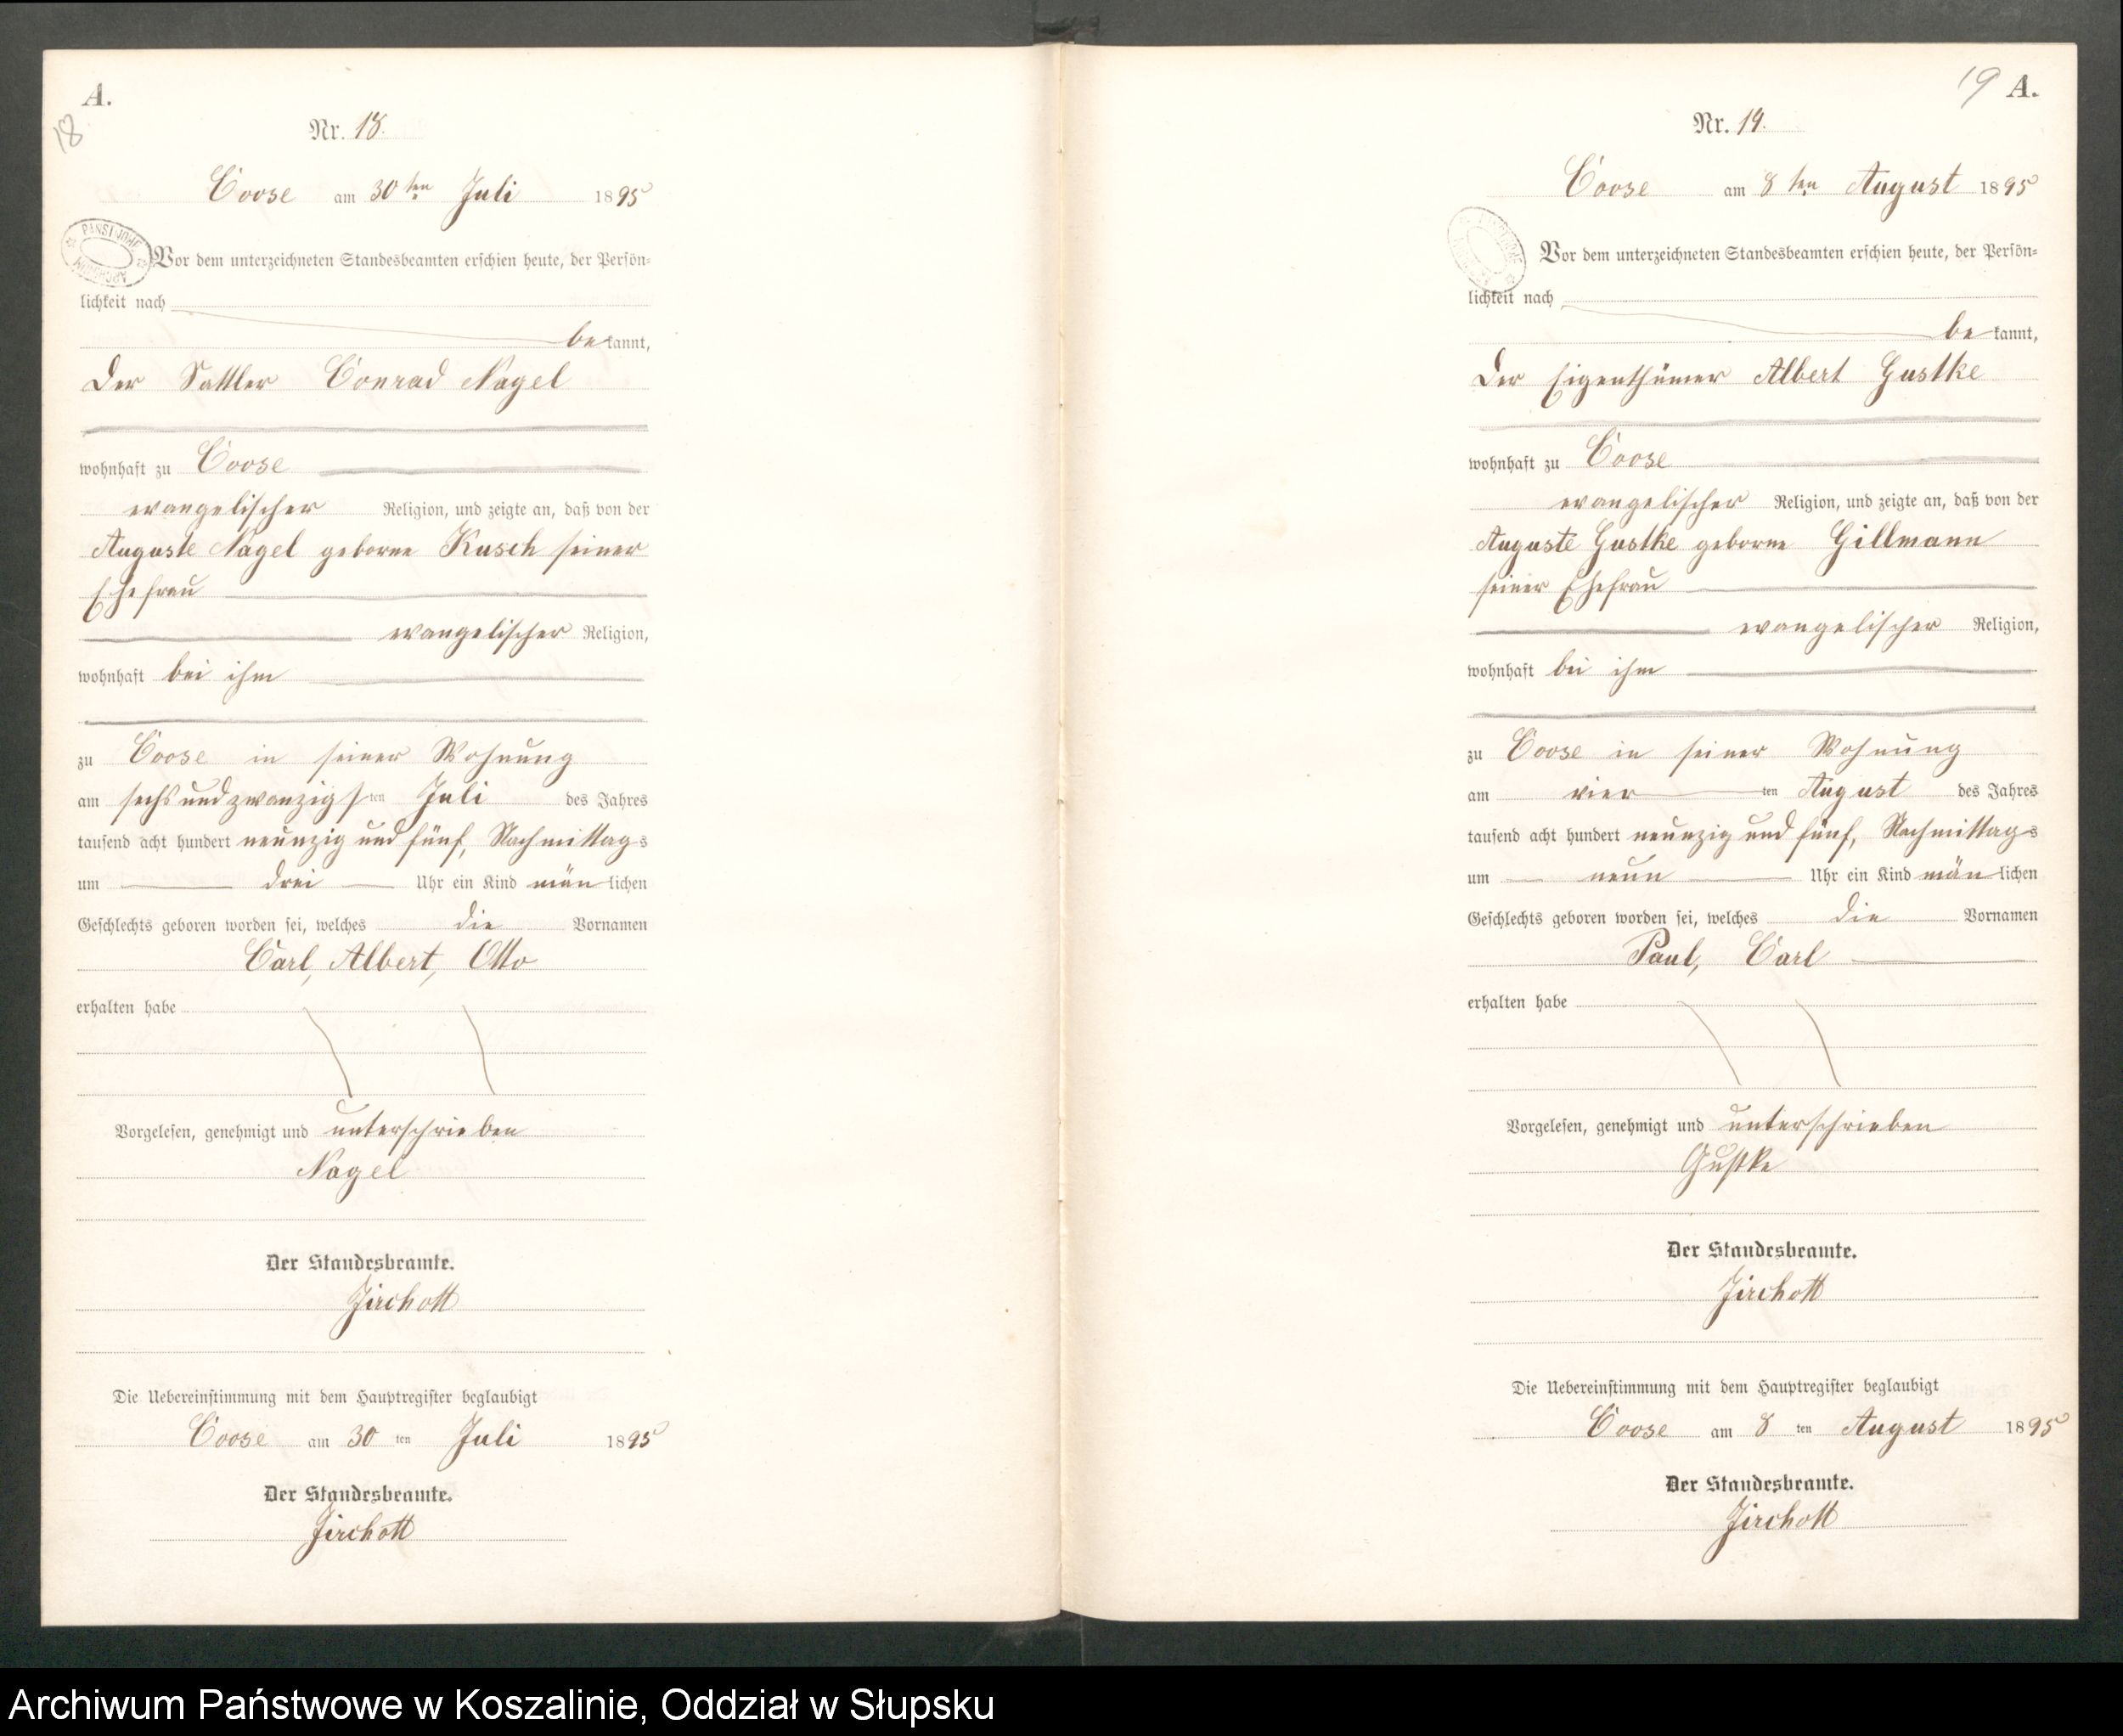 A.
18
Nr. 18.
Coose am 30ten Juli 1895
PAŃSTWOWE ARCHIWUM
Vor dem unterzeichneten Standesbeamten erschien heute, der Persön-
lichkeit nach
be kannt,
der Sattler Conrad Nagel
wohnhaft zu Coose
evangelischer Religion, und zeigte an, daß von der
Auguste Nagel geborne Kusch seiner
Ehefrau
evangelischer Religion,
wohnhaft bei ihm
zu Coose in seiner Wohnung
am sechsundzwanzigsten Juli des Jahres
tausend acht hundert neunzig und fünf, Nachmittags
um drei Uhr ein Kind män lichen
Geschlechts geboren worden sei, welches die Vornamen
Carl, Albert, Otto
erhalten habe
Vorgelesen, genehmigt und unterschrieben
Nagel
Der Standesbeamte.
Jirchott
Die Uebereinstimmung mit dem Hauptregister beglaubigt
Coose am 30 ten Juli 1895
Der Standesbeamte.
Jirchott
19 A.
Nr. 19.
Coose am 8ten August 1895
Vor dem unterzeichneten Standesbeamten erschien heute, der Persön-
lichkeit nach
be kannt,
der Eigenthümer Albert Gustke
wohnhaft zu Coose
evangelischer Religion, und zeigte an, daß von der
Auguste Gustke geborne Gillmann
seiner Ehefrau
evangelischer Religion,
wohnhaft bei ihm
zu Coose in seiner Wohnung
am vier ten August des Jahres
tausend acht hundert neunzig und fünf, Nachmittags
um neun Uhr ein Kind män lichen
Geschlechts geboren worden sei, welches die Vornamen
Paul, Carl
erhalten habe
Vorgelesen, genehmigt und unterschrieben
Gustke
Der Standesbeamte.
Jirchott
Die Uebereinstimmung mit dem Hauptregister beglaubigt
Coose am 8 ten August 1895
Der Standesbeamte.
Jirchott
Archiwum Państwowe w Koszalinie, Oddział w Słupsku